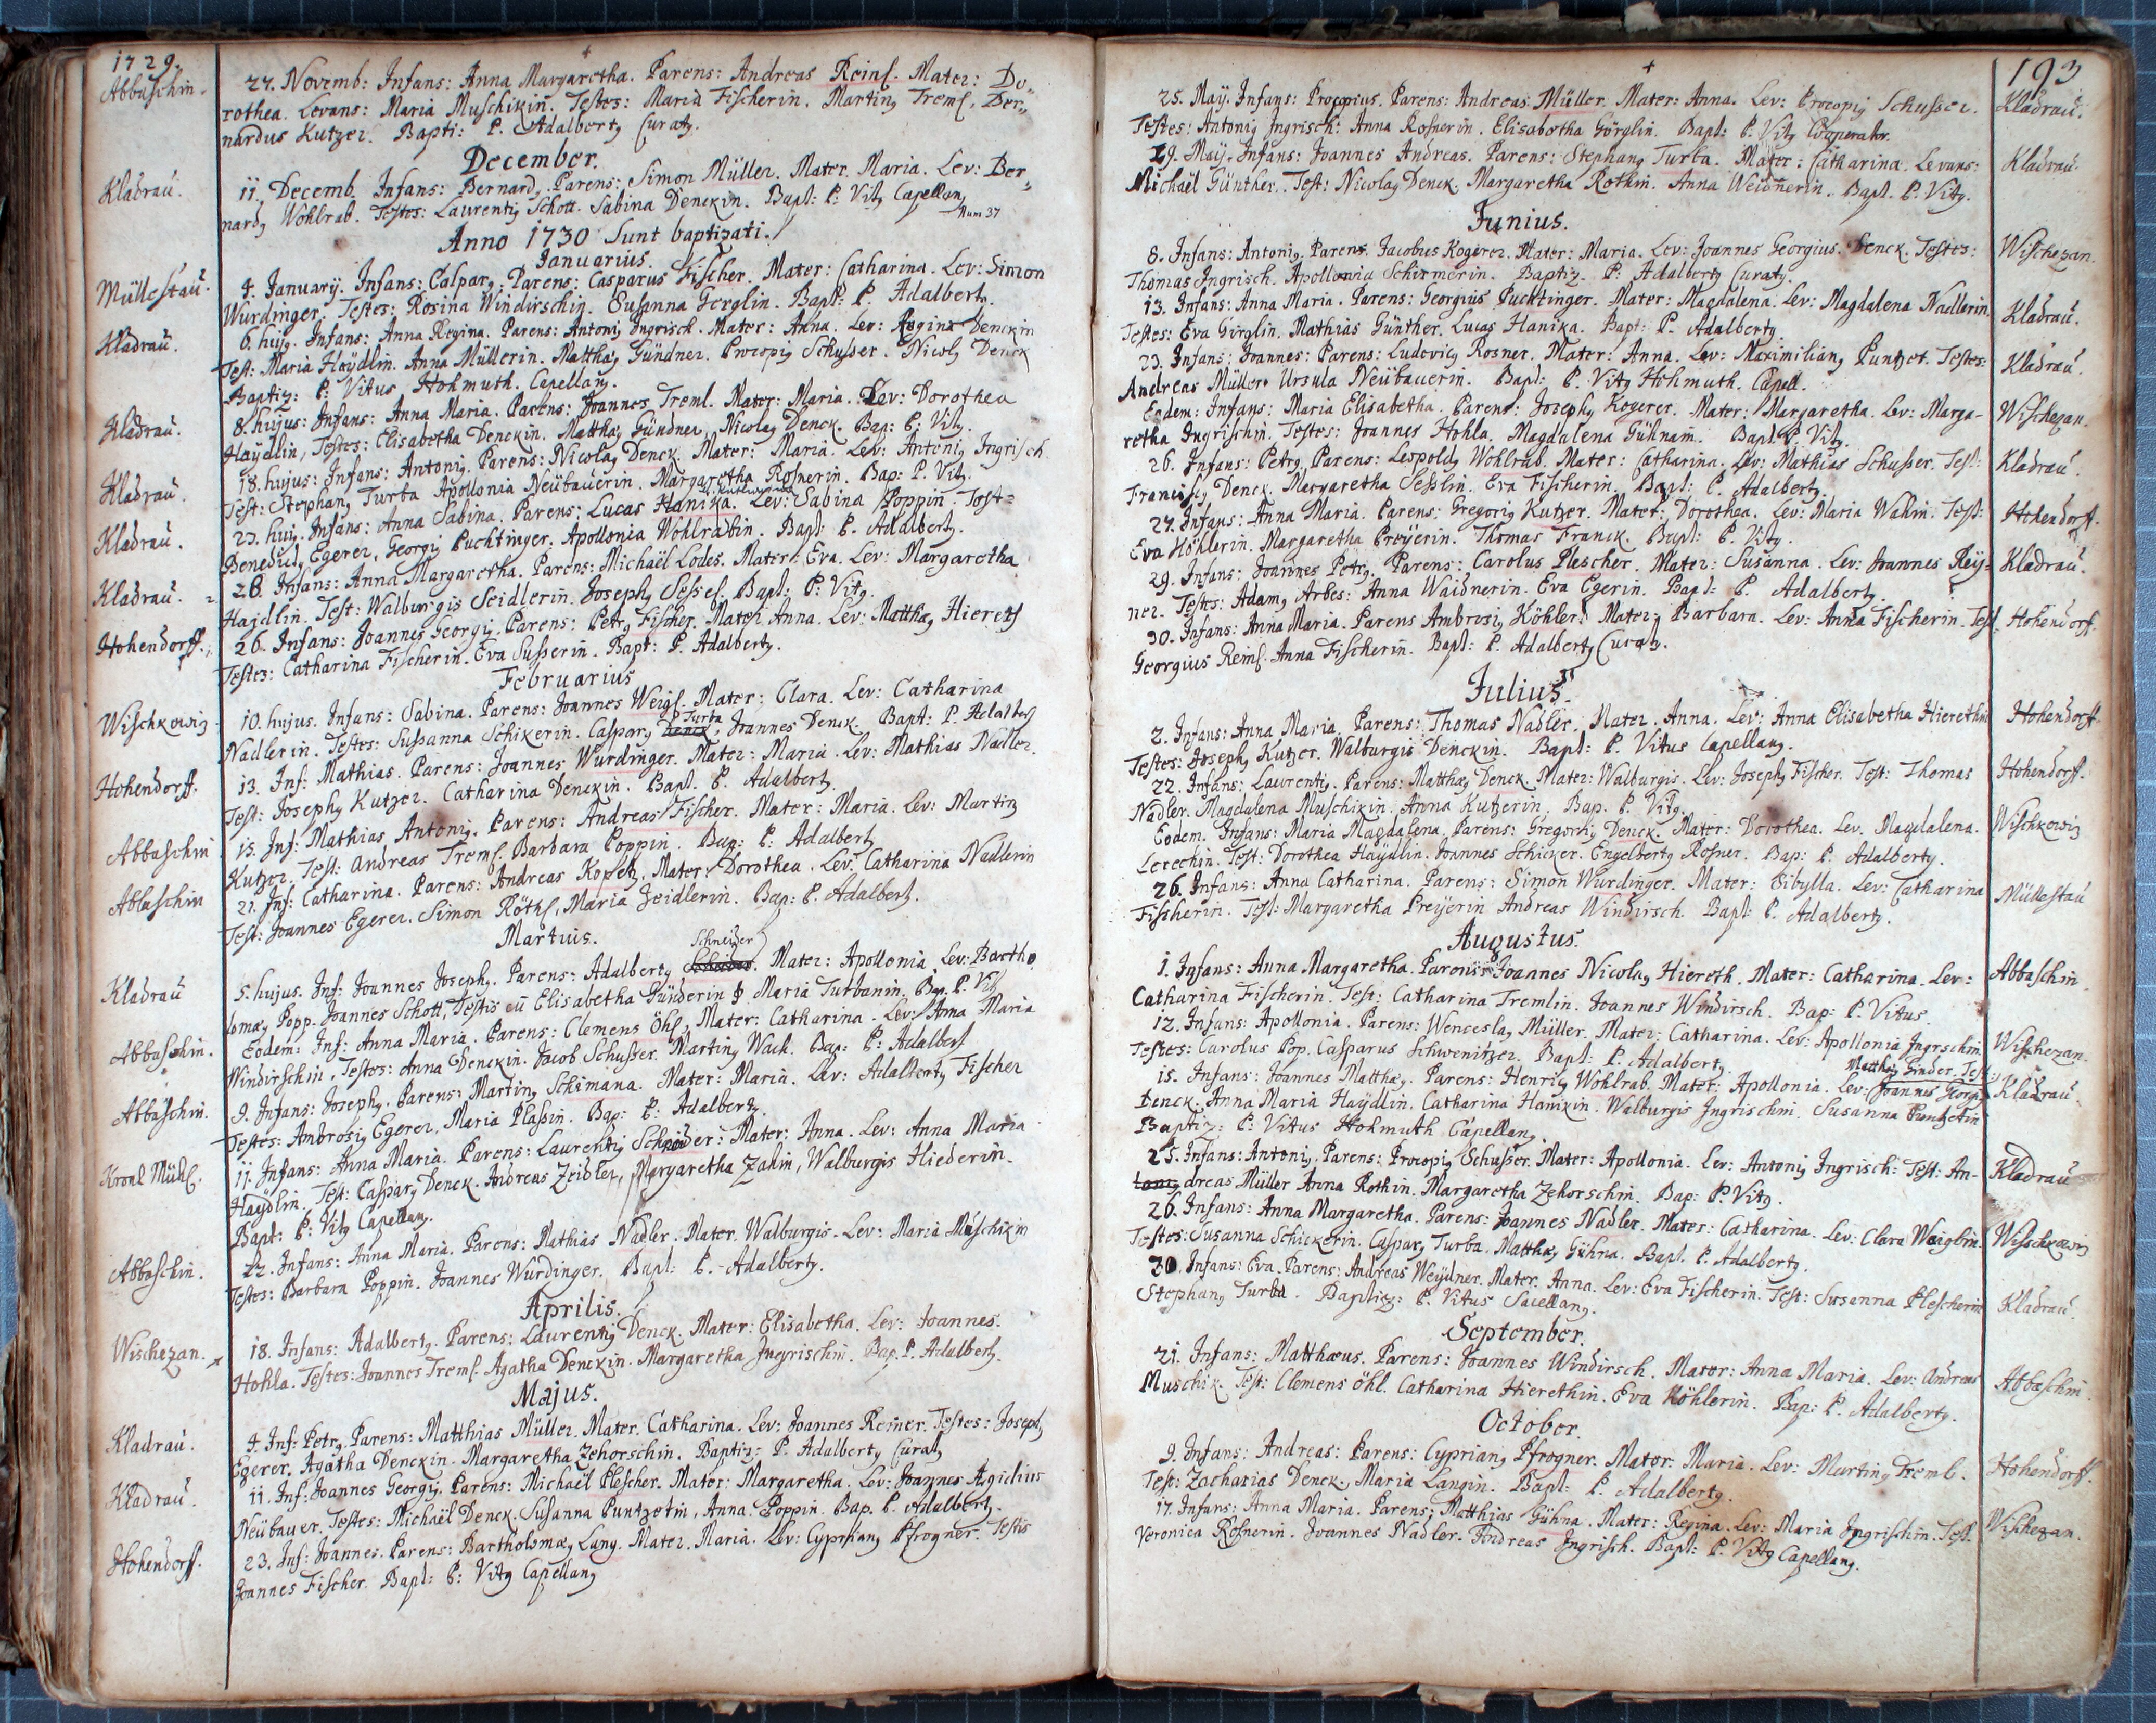 1729.
Abbaschin.
27. Novemb: Infans: Anna Margaretha. Parens: Andreas Reinl. Mater: Do„
rothea. Levans: Maria Muschikin. Testes: Maria Fischerin. Marting Treml. Ber„
nardus Kutzer. Bapti: P. Adalbertg Curatg.
December.
Kladrau.
11. Decemb. Infans: Bernardg. Parens: Simon Müller. Mater. Maria. Lev: Ber„
nardg Wohlrab. Testes: Laurentig Schott. Sabina Denckin. Bapt: P. Vitg Capellang
Num 37
Anno 1730 Sunt baptizati.
Januarius.
Müllestau.
4. January. Infans: Casparg. Parens: Casparus Fischer. Mater: Catharina. Lev: Simon
Würdinger. Testes: Rosina Windirschin. Susanna Gerglin. Bapt: P. Adalbertg.
Kladrau.
6. hujg. Infans: Anna Regina. Parens: Antonig Ingrisch. Mater: Anna. Lev: Regina Denckin
Test: Maria Haÿdlin. Anna Müllerin. Matthæg Gündner. Procopig Schusser. Nicolg Denck
Baptiz: P. Vitus Hohmuth. Capellang.
Kladrau.
8. hujus: Infans: Anna Maria. Parens: Joannes Treml. Mater: Maria. Lev: Dorothea
Haÿdlin, Testes: Elisabetha Denckin. Matthæg Gündner, Nicolag Denck. Bap: P. Vitg.
Kladrau.
18. hujus: Infans: Antonig. Parens: Nicolag Denck. Mater: Maria. Lev: Antonig Ingrisch.
Test: Stephang Turba Apollonia Neübauerin. Margaretha Rosnerin. Bap: P. Vitg.
Kladrau.
23. hujg. Infans: Anna Sabina. Parens: Lucas Hanika. Lev: Sabina Poppin. Test=
Benedictg Egerer, Georgig Puchtinger. Apollonia Wohlrabin. Bapt: P. Adalbertg.
Kladrau.
28. Infans: Anna Margaretha. Parens: Michaël Lodes. Mater: Eva. Lev: Margaretha
Hajdlin. Test: Walburgis Seidlerin. Josephg Sessel. Bapt: P. Vitg.
Hohendorff.
26. Infans: Joannes Georgig. Parens: Petrg Fischer. Mater Anna. Lev: Matthæg Hieretg
Testes: Catharina Fischerin. Eva Susserin. Bapt: P. Adalbertg.
Februarius
Wischkowig
10. hujus. Infans: Sabina. Parens: Joannes Weigl. Mater: Clara. Lev: Catharina
Nadlerin. Testes: Sussanna Schikerin. Casparg Denck Turba, Joannes Denck. Bapt: P. Adalbertg
Hohendorff.
13. Inf: Mathias. Parens: Joannes Wurdinger. Mater: Maria. Lev: Mathias Nadler.
Test: Josephg Kutzer. Catharina Denckin. Bapt. P. Adalbertg
Abbaschin
15. Inf: Mathias Antonig. Parens: Andreas Fischer. Mater: Maria. Lev: Marting
Kutzer. Test: Andreas Treml. Barbara Poppin. Bap: P: Adalbertg
Abbaschin
21. Inf: Catharina. Parens: Andreas Kopetz. Mater: Dorothea. Lev: Catharina Nadlerin
Test: Joannes Egerer. Simon Röthl, Maria Zeidlerin. Bap: P. Adalbert.
Martius.
Kladrau
5. hujus. Inf: Joannes Josephg. Parens: Adalbertg Schneider. Mater: Apollonia. Lev: Bartho
lomæg Popp. Joannes Schott, Testis cu Elisabetha Günderin & Maria Turbanin. Bap. P. Vitg
Abbaschin.
Eodem: Inf: Anna Maria. Parens: Clemens Öhl, Mater: Catharina. Lev: Anna Maria
Windirschin, Testes: Anna Denckin. Jacob Schusser. Marting Wack. Bap: P: Adalbert
Abbaschin.
9. Infans: Josephg. Parens: Marting Schimana. Mater: Maria. Lev: Adalbertg Fischer
Testes: Ambrosig Egerer, Maria Plassin. Bap: P: Adalbertg.
Kronl Mühl.
11. Infans: Anna Maria. Parens: Laurentig Schneider: Mater: Anna. Lev: Anna Maria
Haÿdlin. Test: Casparg Denck. Andreas Zeidler, Margaretha Zahin, Walburgis Hiederin.
Bapt: P: Vitg Capellang.
Abbaschin.
22. Infans: Anna Maria. Parens: Mathias Nadler. Mater. Walburgis. Lev: Maria Muschikin
Testes: Barbara Poppin. Joannes Wurdinger. Bapt: P. Adalbertg.
Aprilis.
Wischezan.
18. Infans: Adalbertg. Parens: Laurentig Denck. Mater: Elisabetha. Lev: Joannes.
Hohla. Testes: Joannes Treml. Agatha Denckin. Margaretha Ingrischin. Bap. P. Adalbertg.
Majus.
Kladrau.
4. Inf: Petrg. Parens: Matthias Müller. Mater. Catharina. Lev: Joannes Reiner. Testes: Josephg
Egerer. Agatha Denckin. Margaretha Zehorschin. Baptiz: P. Adalbertg Curatg
Kladrau.
11. Inf: Joannes Georgig. Parens: Michaël Plescher. Mater: Margaretha. Lev: Joannes Ægidius
Neübauer. Testes: Michaël Denck. Susanna Puntzetin, Anna Poppin. Bap. P. Adalbertg.
Hohendorff.
23. Inf: Joannes. Parens: Bartholomæg Lang. Mater. Maria. Lev: Cyprhang Pfrogner. Testis
Joannes Fischer. Bapt: P: Vitg Capellang
193
25. May. Infans: Procopius. Parens: Andreas Müller. Mater: Anna. Lev: Procopig Schusser.
Kladrau.
Testes: Antonig Ingrisch. Anna Rosnerin. Elisabetha Görglin. Bapt: P. Vitg Cooperator.
29. Maij. Infans: Joannes Andreas. Parens: Stephang Turba. Mater: Catharina. Levans:
Kladrau.
Michaël Günther. Test: Nicolag Denck. Margaretha Rothin. Anna Weidnerin. Bapt. P. Vitg.
Junius.
8. Infans: Antonig. Parens. Jacobus Kogerer. Mater: Maria. Lev: Joannes Georgius. Denck. Testes:
Wischezan.
Thomas Ingrisch. Apollonia Schirmerin. Baptiz. P. Adalbertg Curatg.
13. Infans: Anna Maria. Parens: Georgius Pucktinger. Mater: Magdalena. Lev: Magdalena Nadlerin.
Kladrau.
Testes: Eva Girglin. Mathias Günther. Lucas Hanika. Bapt: P. Adalbertg.
23. Infans: Joannes: Parens: Ludovicg Rosner. Mater: Anna. Lev: Maximiliang Puntzet. Testes:
Kladrau.
Andreas Müller. Ursula Neübauerin. Bapt: P. Vitg Hohmuth. Capell.
Eodem: Infans: Maria Elisabetha. Parens: Josephg Kogerer. Mater: Margaretha. Lev: Marga-
Wischezan.
retha Ingrischin. Testes: Joannes Hohla. Magdalena Gühnain. Bapt. P. Vitg.
26. Infans: Petrg Parens: Leopoldg Wohlrab. Mater: Catharina. Lev: Mathias Schusser. Test:
Kladrau.
Franciscg Denck. Margaretha Sesslin. Eva Fischerin. Bapt: P. Adalbertg.
27. Infans: Anna Maria. Parens: Gregorig Kutzer. Mater: Dorothea. Lev: Maria Wahin. Test:
Hohendorff.
Eva Höhlerin. Margaretha Preÿerin. Thomas Franck. Bapt: P. Vitg.
29. Infans: Joannes Petrg. Parens: Carolus Plescher. Mater: Susanna. Lev: Joannes Reij-
Kladrau.
ner. Testes: Adamg Arbes: Anna Waidnerin. Eva Egerin. Bapt: P. Adalbertg.
30. Infans: Anna Maria. Parens Ambrosig Köhler. Mater: Barbara. Lev: Anna Fischerin. Test
Hohendorf.
Georgius Reinl. Anna Fischerin. Bapt: P. Adalbertg Curatg.
Julius.
2. Infans: Anna Maria. Parens: Thomas Nadler. Mater. Anna. Lev: Anna Elisabetha Hierethin
Hohendorff
Testes: Josephg Kutzer. Walburgis Denckin. Bapt: P. Vitus Capellang.
22. Infans: Laurentig. Parens: Matthæg Denck. Mater: Walburgis. Lev: Josephg Fischer. Test: Thomas
Hohendorff.
Nadler. Magdalena Muschikin. Anna Kutzerin. Bap. P. Vitg.
Eodem. Infans: Maria Magdalena. Parens: Gregorig Denck. Mater: Dorothea. Lev. Magdalena.
Wischkowig
Lerechin. Test: Dorothea Haÿdlin. Joannes Schicker. Engelbertg Rosner. Bap: P. Adalbertg.
26. Infans: Anna Catharina. Parens: Simon Wurdinger. Mater: Sibylla. Lev: Catharina
Müllestau
Fischerin. Test: Margaretha Preijerin Andreas Windirsch. Bapt: P. Adalbertg.
Augustus.
1. Infans: Anna Margaretha. Parens: Joannes Nicolag Hiereth. Mater: Catharina. Lev:
Abbaschin.
Catharina Fischerin. Test: Catharina Tremlin. Joannes Windirsch. Bap: P. Vitus.
12. Infans: Apollonia. Parens: Wenceslag Müller. Mater: Catharina. Lev: Apollonia Ingrschin.
Wischezan.
Testes: Carolus Pop. Casparus Schwenitzer. Bapt: P. Adalbertg.
Matthæg Ginder. Test:
15. Infans: Joannes Matthæg. Parens: Henrig Wohlrab. Mater: Apollonia. Lev: Joannes Georg
Kladrau.
Denck. Anna Maria Haÿdlin. Catharina Hanikin. Walburgis Ingrischin. Susanna Puntzetin
Baptiz: P: Vitus Hohmuth Capellang.
25. Infans: Antonig. Parens: Procopig Schusser. Mater: Apollonia. Lev: Antonig Ingrisch: Test: An-
Kladrau
dreas Müller Anna Rothin. Margaretha Zehorschin. Bap: P. Vitg.
26. Infans: Anna Margaretha. Parens: Joannes Nadler. Mater: Catharina. Lev: Clara Weiglin.
Wischkowig
Testes: Susanna Schickerin. Casparg Turba. Matthæg Gühna. Bapt. P. Adalbertg.
30. Infans: Eva. Parens: Andreas Weÿdner. Mater. Anna. Lev: Eva Fischerin. Test: Susanna Plescherin
Kladrau.
Stephang Turba. Baptiz: P. Vitus Sacellang.
September.
21. Infans: Matthæus. Parens: Joannes Windirsch. Mater: Anna Maria. Lev: Andreas
Abbaschin.
Muschik. Test: Clemens Öhl. Catharina Hierethin. Eva Köhlerin. Bap: P. Adalbertg.
October.
9. Infans: Andreas: Parens: Cypriang Pfrogner. Mater: Maria. Lev: Marting Treml.
Hohendorff.
Test: Zacharias Denck, Maria Langin. Bapt: P. Adalbertg.
17. Infans: Anna Maria. Parens: Matthias Gühna. Mater: Regina. Lev: Maria Ingrischin. Test.
Wischezan.
Veronica Rosnerin. Joannes Nadler. Andreas Ingrisch. Bapt: P. Vitg Capellang.